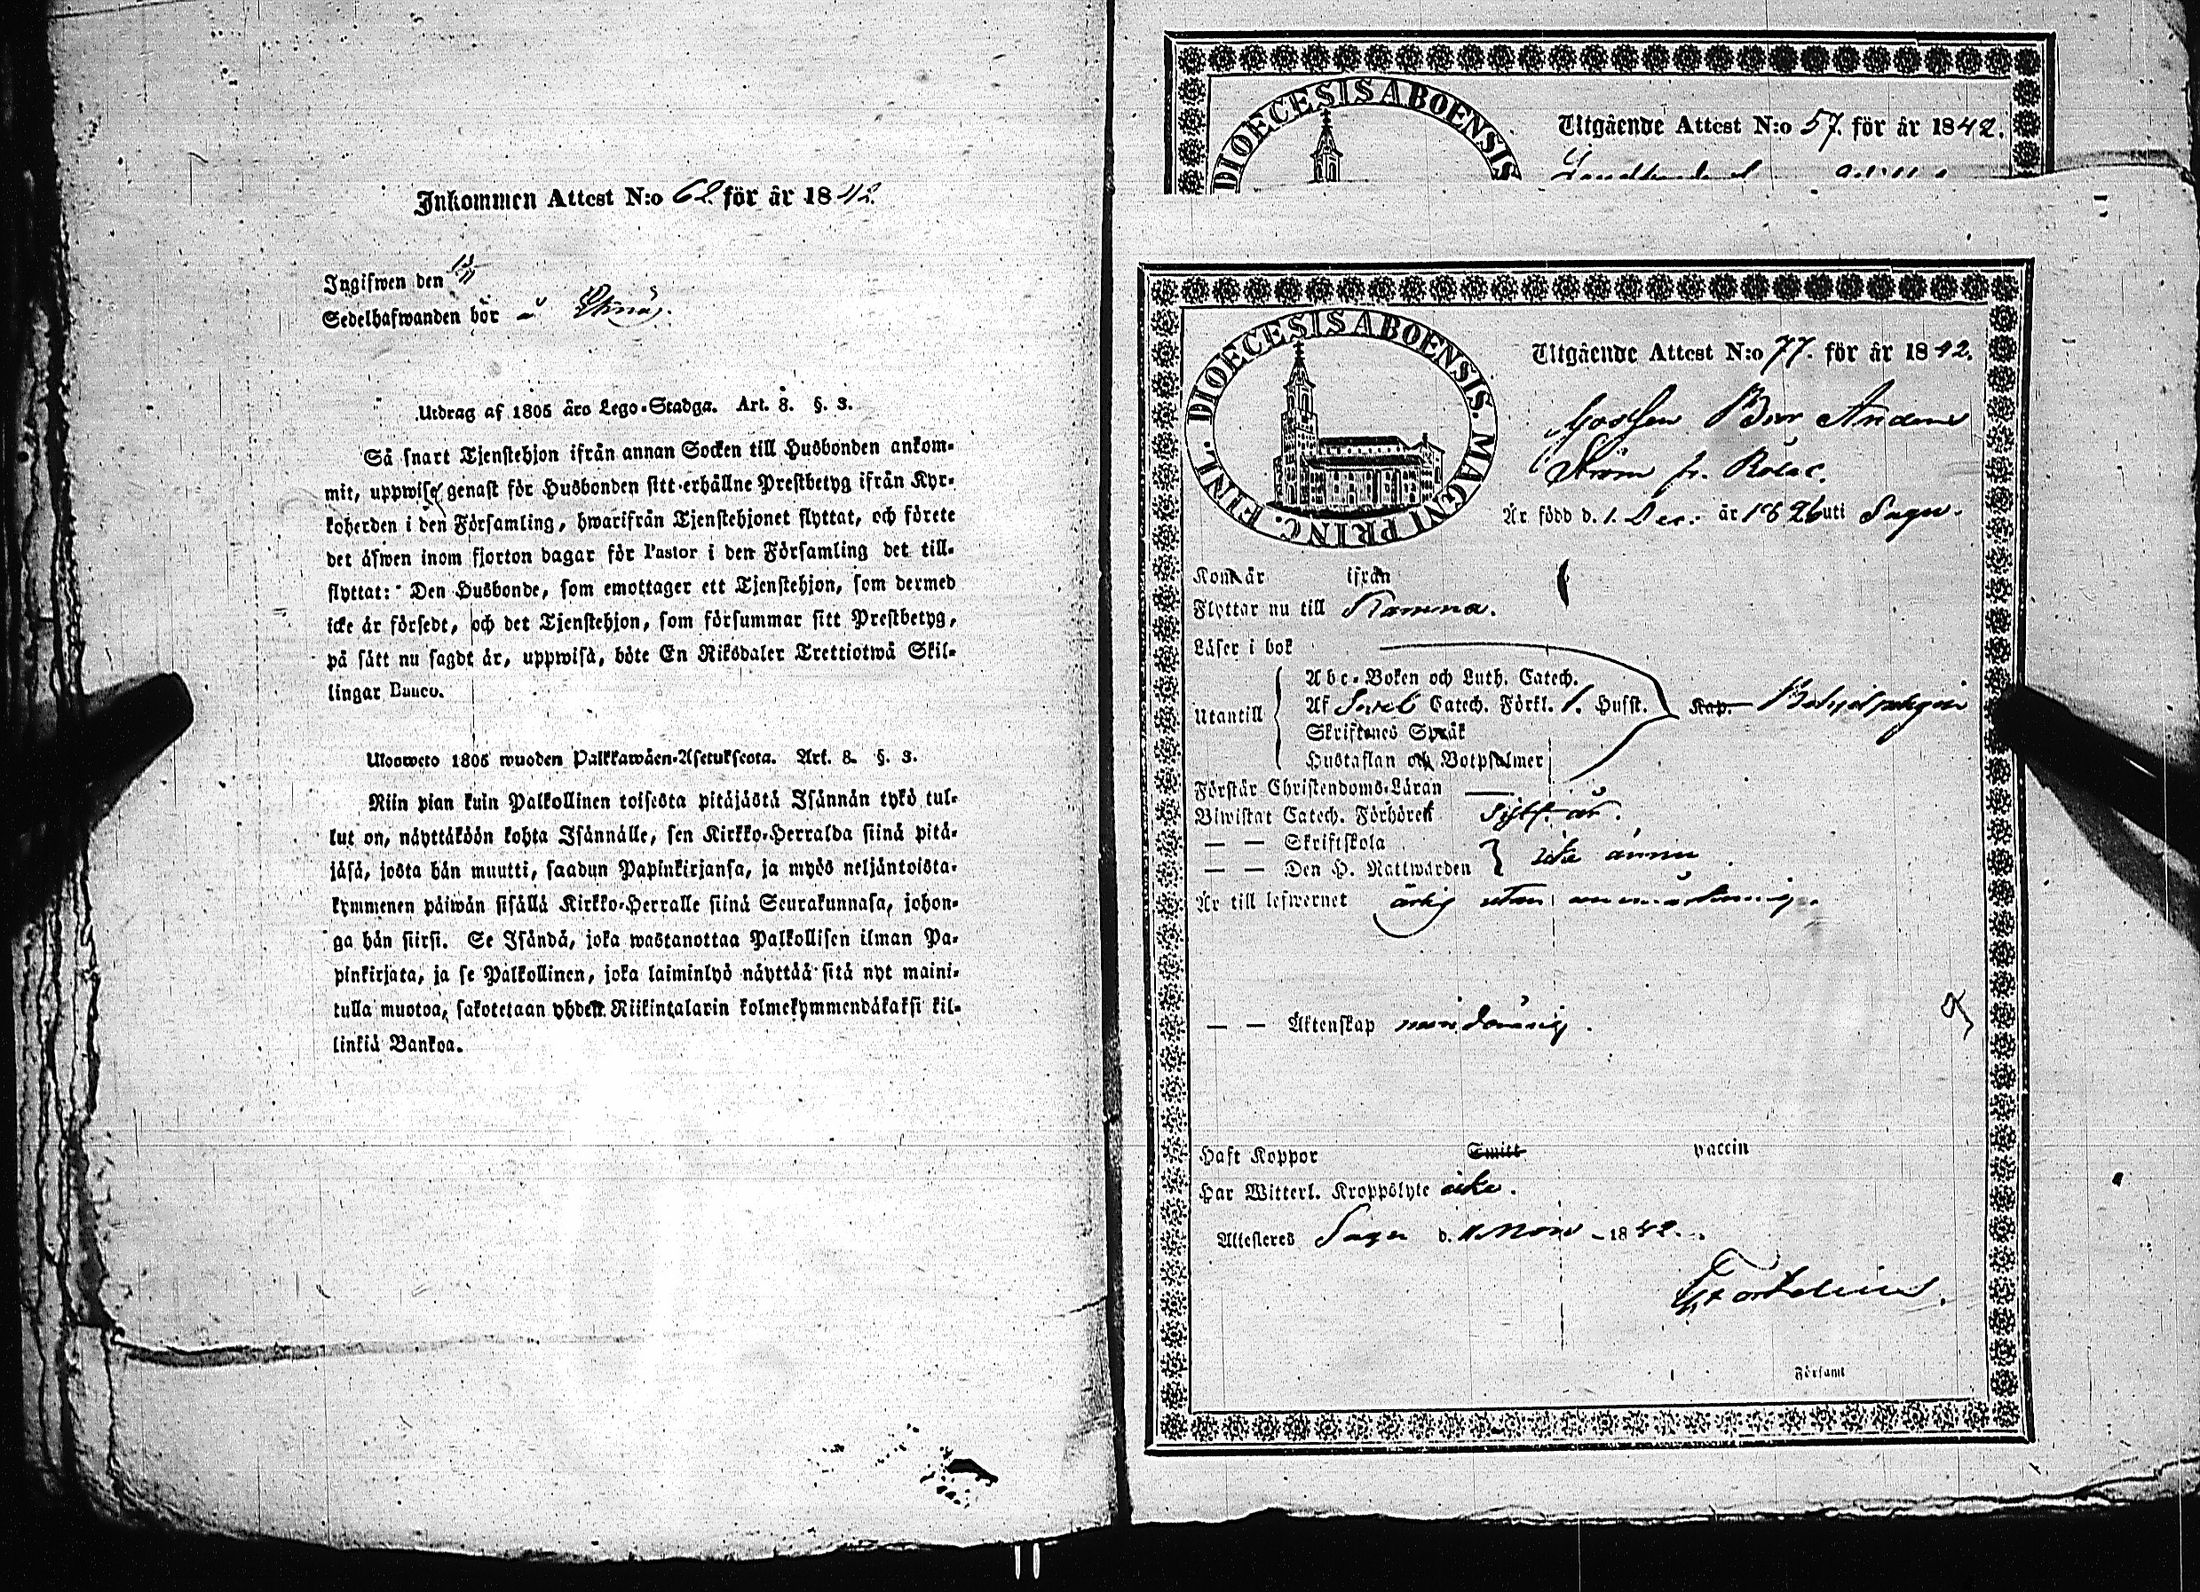 Inkommen Attest N:o 62. för år 1842.
Ingifwen den 13/11
Sedelhafwanden bör å
Utdrag af 1805 års Lego-Stadga. Art. 8. §. 3.
Så snart Tjenstehjon ifrån annan Socken till Husbonden ankom-
mit, uppwise genast för Husbonden sitt erhållne Prestbetyg ifrån Kyr-
koherden i den Församling, hwarifrån Tjenstehjonet flyttat, och förete
det äfwen inom fjorton dagar för Pastor i den Församling det till-
flyttat: Den Husbonde, som emottager ett Tjenstehjon, som dermed
icke är försedt, och det Tjenstehjon, som försummar sitt Prestbetyg,
på sätt nu sagdt är, uppwisa, böte En Riksdaler Trettiotwå Skil-
lingar Banco.
Uloosweto 1805 wuoden Palkkawäen-Asetuksesta. Art. 8. §. 3.
Niin pian kuin Palkollinen toisesta pitäjästä Isännän tykö tul-
lut on, näyttäköön kohta Isännälle, sen Kirkko-Herralda siinä pitä-
jäsä, josta hän muutti, saadun Papinkirjansa, ja myös neljäntoista-
kymmenen päiwän sisällä Kirkko-Herralle siinä Seurakunnasa, johon-
ga hän siirsi. Se Isändä, joka wastanottaa Palkollisen ilman Pa-
pinkirjata, ja se Palkollinen, joka laiminlyö näyttää sitä nyt maini-
tulla muotoa, sakotetaan yhden Riikintalarin kolmekymmendäkaksi kil-
linkiä Bankoa.
DIOECESIS ABOENSIS
Utgående Attest N:o 57. för år 1842.
DIOECESIS ABOENSIS. MAGNI PRINC. FINL.
Utgående Attest N:o 77. för år 1842.
Gossen Anders
Ström fr.
Är född d. 1. Dec. år 1826 uti Sagu.
Kom är ifrån
Flyttar nu till
Läser i bok
Utantill
Abc-Boken och Luth. Catech.
Af Sveb Catech. Förkl. Husst. Kap.
Skriftenes Språk
Hustaflan och Botpsalmer
Förstår Christendoms-Läran
Biwistat Catech. Förhören sistl. år.
— — Skriftskola
— — Den H. Nattwarden icke ännu
Är till lefwernet ärlig utan anmärkning.
— — Äktenskap minderårig.
Haft Koppor Smitt vaccin
Har Witterl. Kroppslyte icke.
Attesteras Sagu d. 11 Nov 1842.
Församl